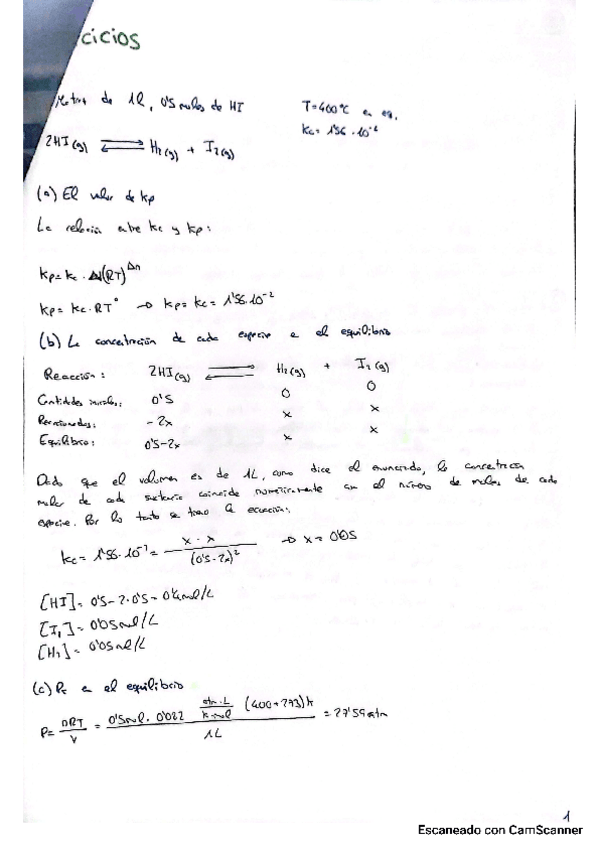 cicios
de 1l, 0'5 moles de HI
T=400°C en eq.
Kc = 1'56·10⁻²
2HI(g) ⇌ H₂(g) + I₂(g)
(a) El valor de Kp
La relación entre Kc y Kp:
Kp = Kc · (RT)^Δn
Kp = Kc · RT° → Kp = Kc = 1'56·10⁻²
(b) La concentración de cada especie en el equilibrio
Reacción: 2HI(g) ⇌ H₂(g) + I₂(g)
Cantidades iniciales: 0'5 0 0
Reaccionados: -2x x x
Equilibrio: 0'5-2x x x
Dado que el volumen es de 1L, como dice el enunciado, la concetración
molar de cada sustancia coincide numéricamente con el número de moles de cada
especie. Por lo tanto se tiene la ecuación:
Kc = 1'56·10⁻² = x·x / (0'5-2x)² → x = 0'05
[HI] = 0'5-2·0'05 = 0'4mol/L
[I₂] = 0'05mol/L
[H₂] = 0'05mol/L
(c) Pt en el equilibrio
P = nRT / V = 0'5mol · 0'082 atm·L / K·mol (400+273)K / 1L = 27'59atm
1
Escaneado con CamScanner